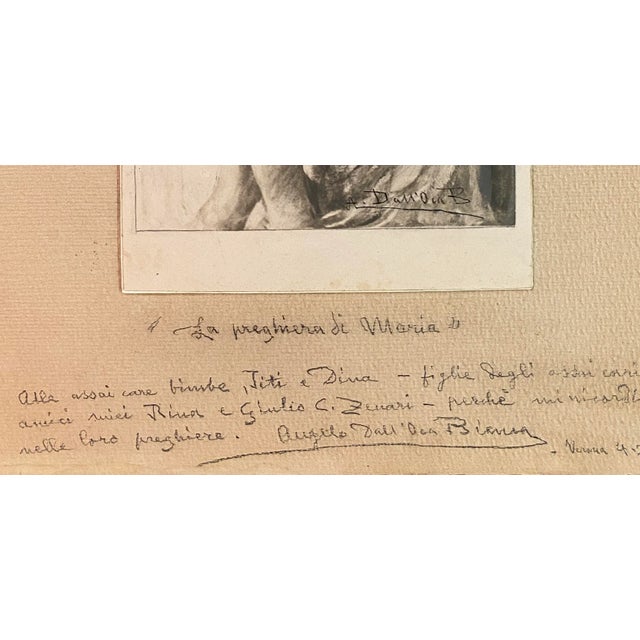 A. Dall'Oca B
"La preghiera di Maria"
Alle assai care bimbe, Titi e Dina - figlie degli assai cari
amici miei Rina e Giulio C. Zenari - perchè mi ricordi
nelle loro preghiere. Angelo Dall'Oca Bianca
- Verona 4.